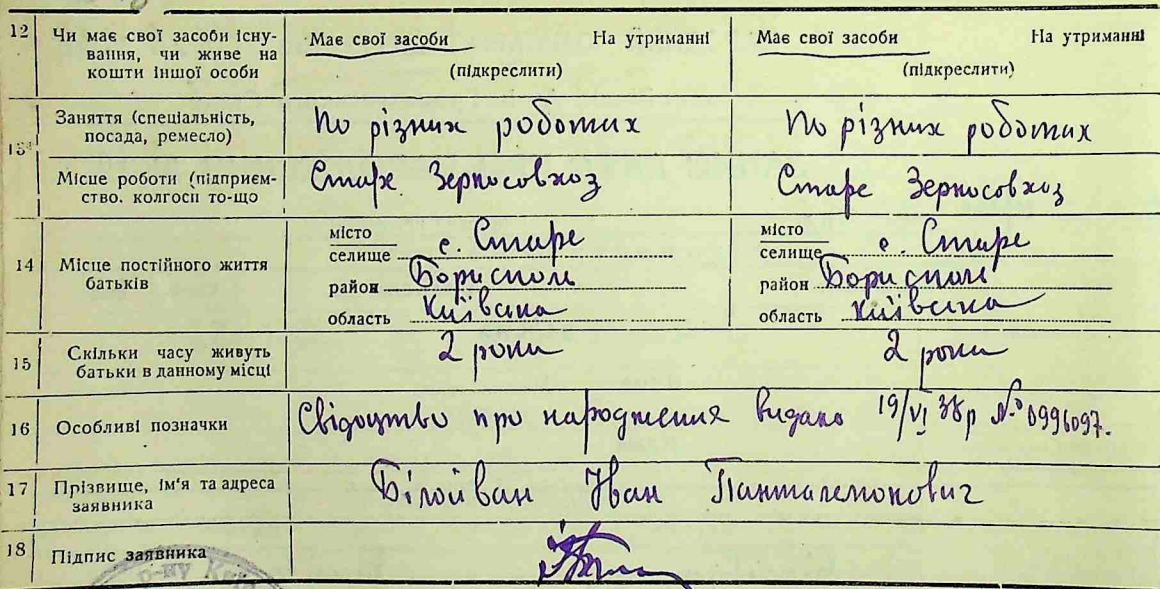 12 Чи має свої засоби існу-
вання, чи живе на
кошти іншої особи
Має свої засоби На утриманні
(підкреслити)
Має свої засоби На утриманні
(підкреслити)
Заняття (спеціальність,
посада, ремесло)
По різних роботих
По різних роботих
Місце роботи (підприєм-
ство. колгосп то-що
Старе Зерносовхоз
Старе Зерносовхоз
14 Місце постійного життя
батьків
місто
селище с. Старе
район Бориспол
область Київська
місто
селище с. Старе
район Бориспол
область Київська
15 Скільки часу живуть
батьки в данному місці
2 роки
2 роки
16 Особливі позначки
Свідоцтво про народження видано 19/VI 38р № 0996097.
17 Прізвище, ім'я та адреса
заявника
Білойван Іван Панталемонович
18 Підпис заявника
р-ну